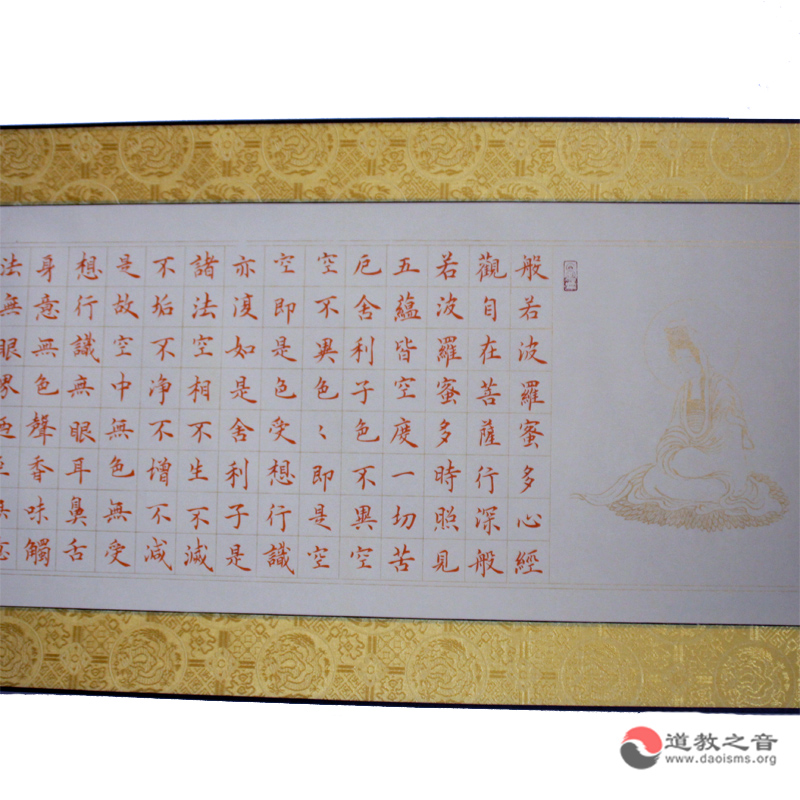 般若波羅蜜多心經
觀自在菩薩行深般
若波羅蜜多時照見
五蘊皆空度一切苦
厄舍利子色不異空
空不異色〻即是空
空即是色受想行識
亦復如是舍利子是
諸法空相不生不滅
不垢不净不增不减
是故空中無色無受
想行識無眼耳鼻舌
身意無色聲香味觸
法無眼界
道教之音
www.daoisms.org